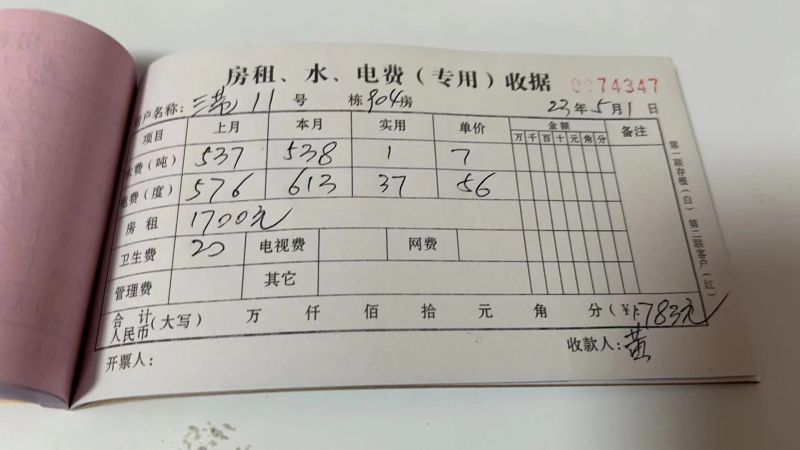 房租、水、电费（专用）收据 0074347
户名称： 11 号 栋 904 房 23 年 5 月 1 日
项目 上月 本月 实用 单价 金额 备注
万 千 百 十 元 角 分
水费（吨） 537 538 1 7
电费（度） 576 613 37 56
房 租 1700元
卫生费 20 电视费 网费
管理费 其它
合 计 人民币（大写） 万 仟 佰 拾 元 角 分（¥1783元
开票人： 收款人：黄
第一联存根（白） 第二联客户（红）